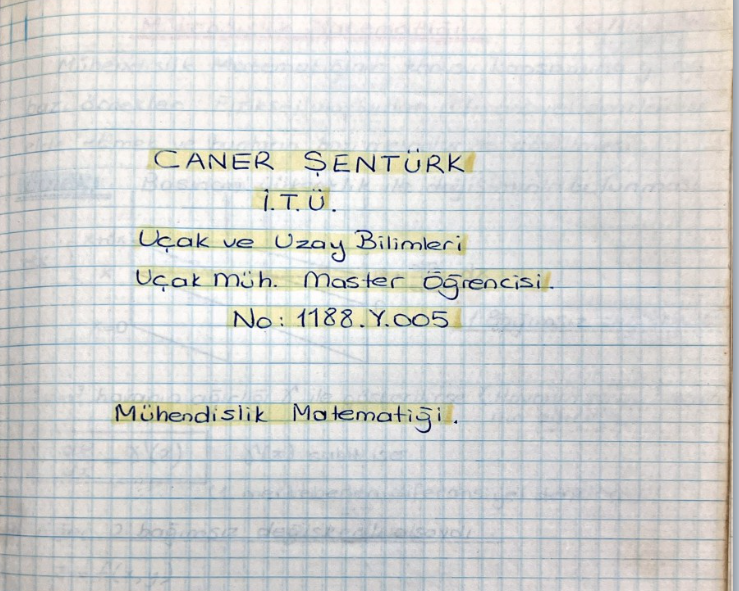 CANER ŞENTÜRK
İ.T.Ü.
Uçak ve Uzay Bilimleri
Uçak müh. Master Öğrencisi.
No: 1188.Y.005
Mühendislik Matematiği.